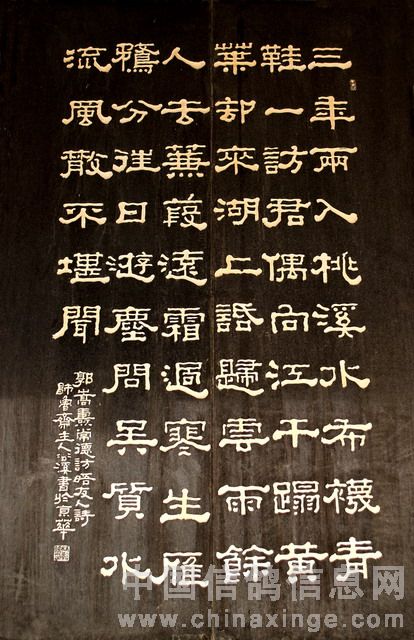 三年兩入桃溪水布襪青
鞋一訪君偶向江干蹋黃
葉却來湖上話歸雲雨餘
人去蒹葭遠霜過寒生雁
鶩分往日游塵問吳質水
流風散不堪聞
郭嵩燾常德方晤友人詩
師魯齋主人 溪書於京華
中国信鸽信息网
www.chinaxinge.com